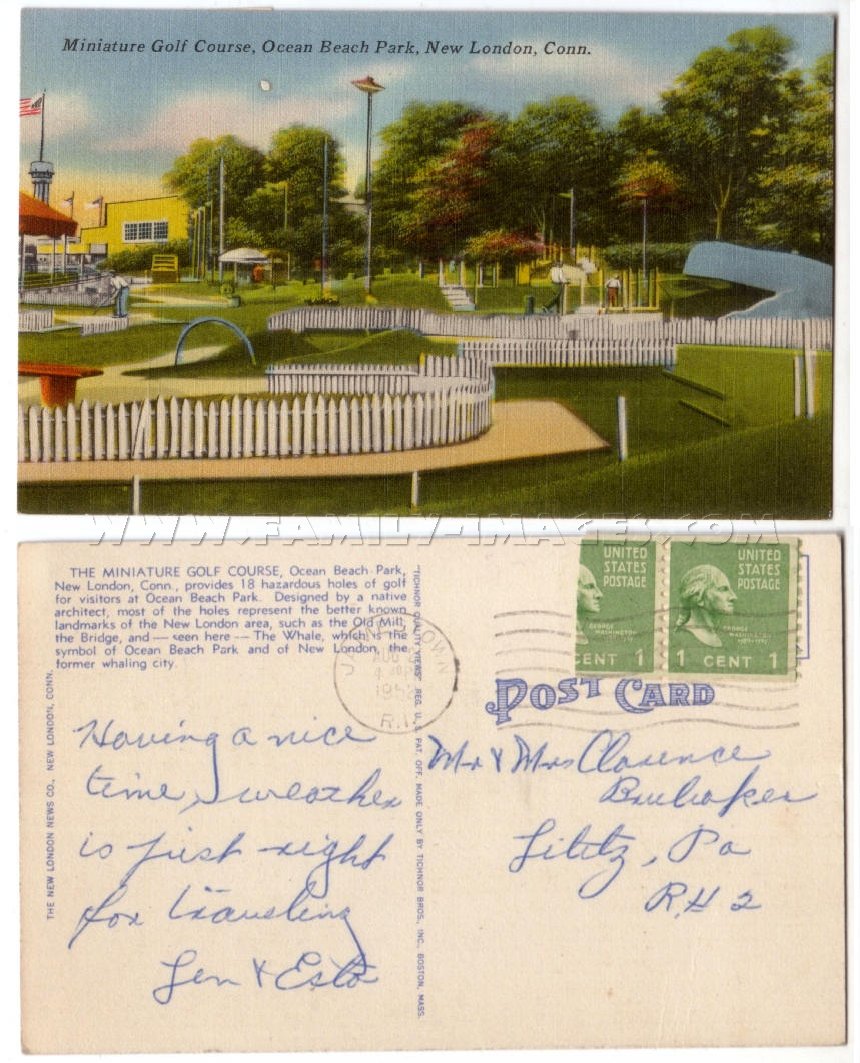 Miniature Golf Course, Ocean Beach Park, New London, Conn.
WWW.FAMILY-IMAGES.COM
THE MINIATURE GOLF COURSE, Ocean Beach Park,
New London, Conn., provides 18 hazardous holes of golf
for visitors at Ocean Beach Park. Designed by a native
architect, most of the holes represent the better known
landmarks of the New London area, such as the Old Mill,
the Bridge, and — seen here — The Whale, which is the
symbol of Ocean Beach Park and of New London, the
former whaling city.
THE NEW LONDON NEWS CO., NEW LONDON, CONN.
Having a nice
time, weather
is just right
for traveling
Len & Esta
"TICHNOR QUALITY VIEWS" REG. U. S. PAT. OFF. MADE ONLY BY TICHNOR BROS., INC., BOSTON, MASS.
JAMESTOWN
AUG
R.I.
UNITED
STATES
POSTAGE
GEORGE
WASHINGTON
CENT 1
UNITED
STATES
POSTAGE
GEORGE
WASHINGTON
1 CENT 1
POST CARD
Mr & Mrs Clarence
Brubaker
Lititz, Pa
R# 2